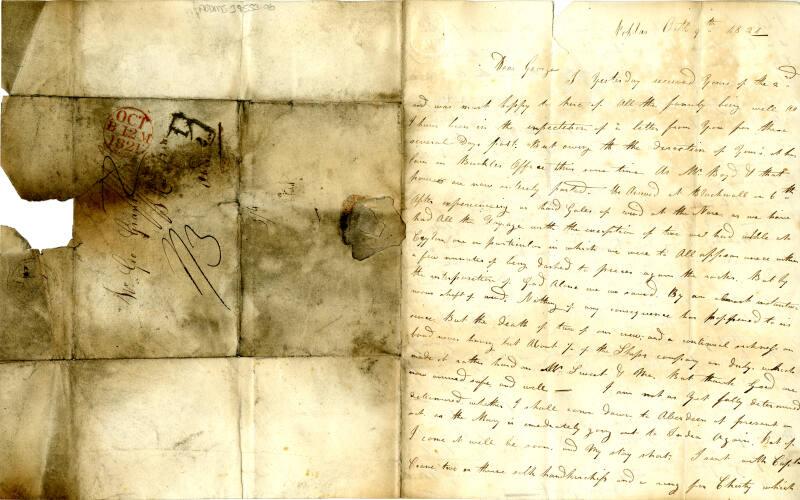 Dear George I Yesterday received Yours of the 2nd
and was most happy to hear of All the family being well As
I have been in the expectation of a letter from You for these
several Days past. But owing to the direction of Yours it has
lain in Buckles Office this some time As Mr Boyd & that
process are now entirely parted. We Arrived At Blackwall on 6th
After experiencing as hard Gales of wind At the Nore as we have
had All the Voyage with the exception of two we had while At
Ceylon, one in particular in which we were to All appearance within
a few minutes of being dashed to pieces against the rocks. But by
the interposition of God Alone we were saved. By an almost instantan
eous shift of wind. Nothing of any consequence has happened to us
since But the death of two of our crew, and a continual sickness on
board never having but About ½ of the Ships company on duty, which
made it rather hard on Mr Sweet & Me. But thank God we
are arrived safe and well — I am not as Yet fully determined
determined whether I shall come down to Aberdeen at present or
not as the Mary is immediately going out to India Again. But if
I come it will be soon, and My stay short. I sent with Captn
two or three silk handkerchiefs and a ring for Christy which
OCT
8 12M
1821
Mr. Geo Grant